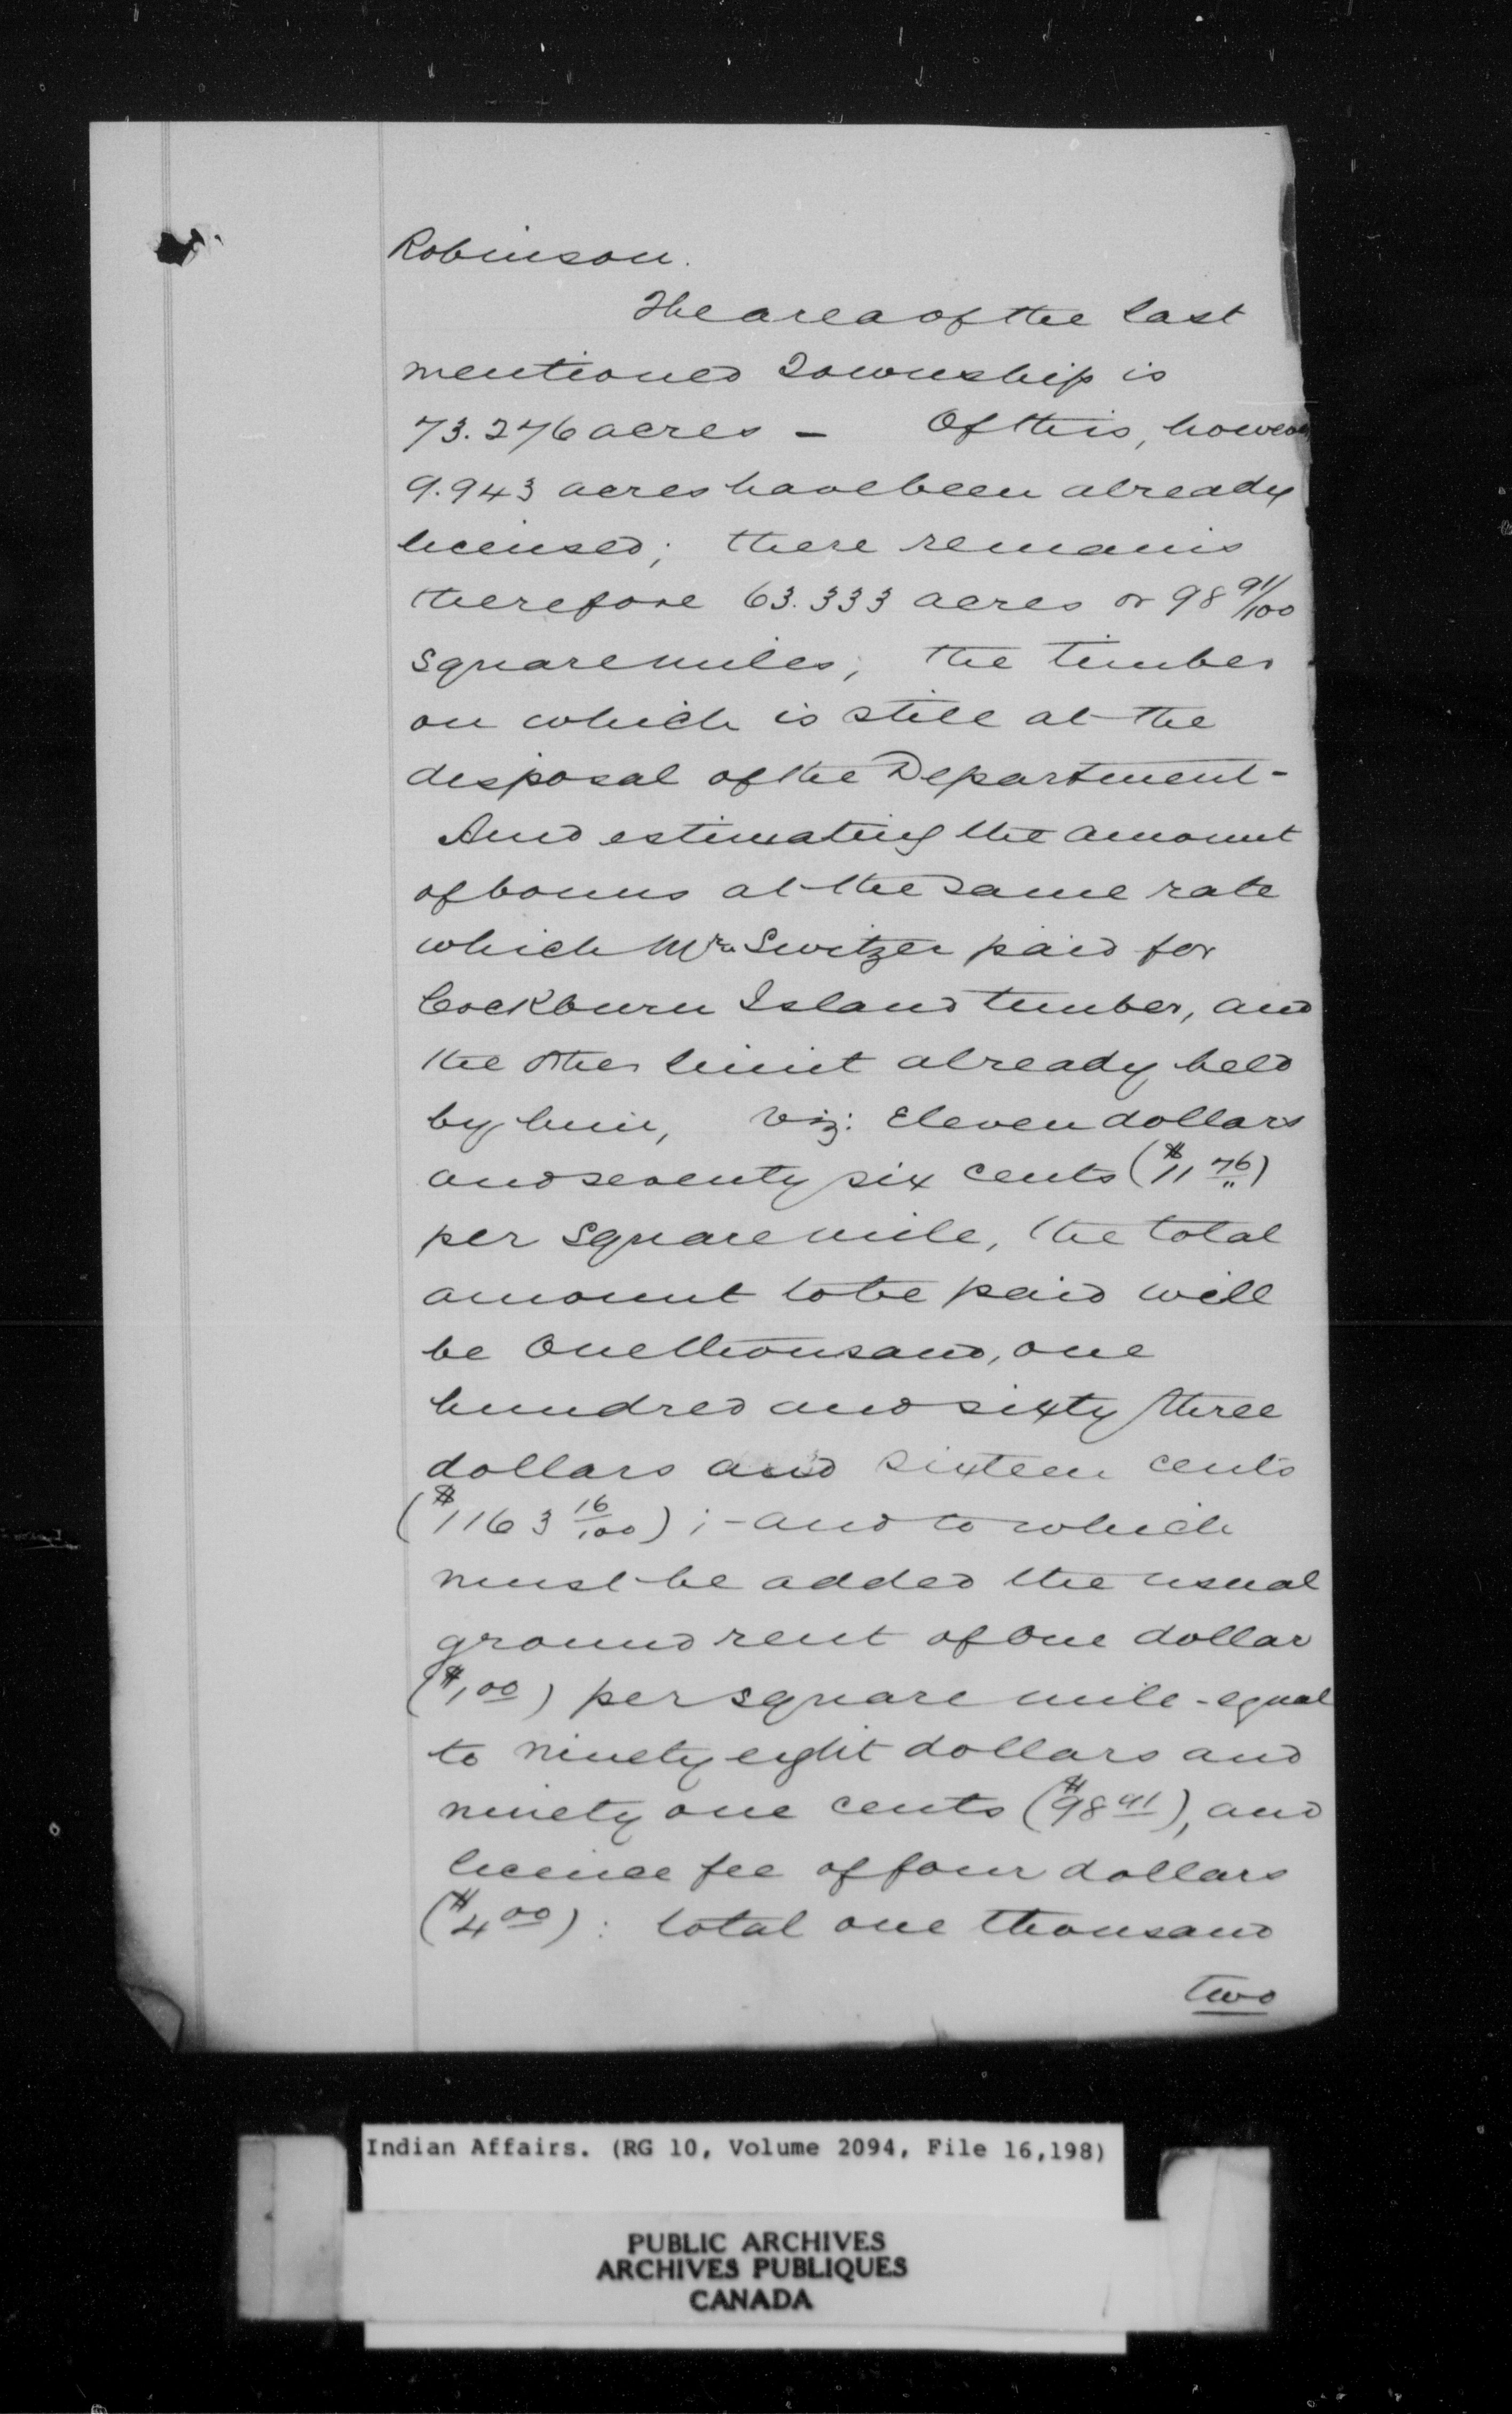 Robinson.
The area of the last
mentioned Township is
73.276 acres - Of this, however
9.943 acres have been already
licensed; there remains
therefore 63.333 acres or 98 91/100
square miles; the timber
on which is still at the
disposal of the Department-
And estimating the amount
of bonus at the same rate
which Mr. Switzer paid for
Cockburn Island timber, and
the other limit already held
by him, viz: Eleven dollars
and seventy six cents ($11 76)
per square mile, the total
amount to be paid will
be One thousand, one
hundred and sixty three
dollars and sixteen cents
($1163 16/100) ;- and to which
must be added the usual
ground rent of One dollar
($1,00) per square mile - equal
to ninety eight dollars and
ninety one cents ($98 91), and
license fee of four dollars
($4 00): total one thousand
two
Indian Affairs. (RG 10, Volume 2094, File 16,198)
PUBLIC ARCHIVES
ARCHIVES PUBLIQUES
CANADA